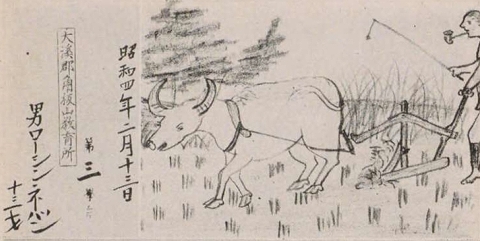 昭和四年二月十三日
第三學年
大溪郡角板山教育所
男ローシン・ネバン